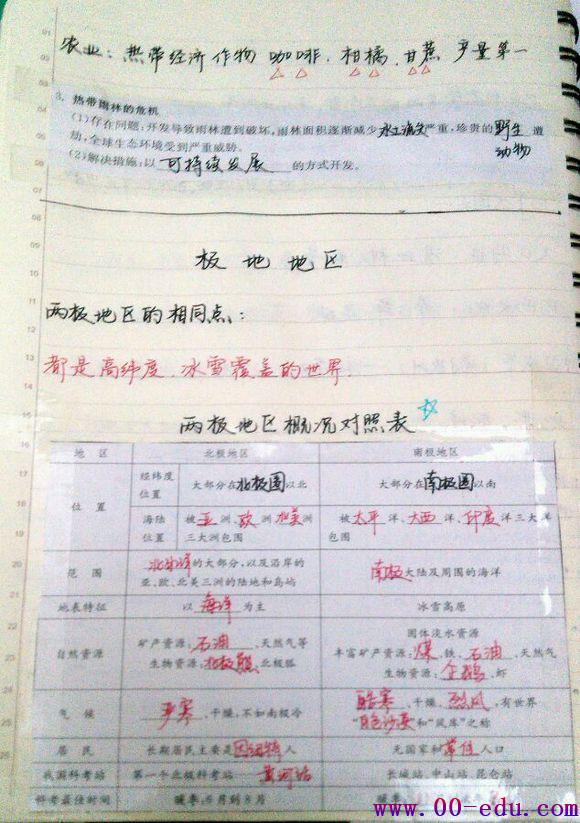 农业：热带经济作物 咖啡、柑橘、甘蔗 产量第一
3. 热带雨林的危机
(1)存在问题：开发导致雨林遭到破坏，雨林面积逐渐减少 水土流失严重，珍贵的 野生 遭
动物
劫，全球生态环境受到严重威胁。
(2)解决措施：以 可持续发展 的方式开发。
极地地区
两极地区的相同点：
都是高纬度、冰雪覆盖的世界.
两极地区概况对照表
地 区 北极地区 南极地区
位 置 经纬度位置 大部分在北极圈以北 大部分在南极圈以南
海陆位置 被亚洲、欧洲北美洲三大洲包围 被太平洋、大西洋、印度洋三大洋包围
范 围 北冰洋的大部分，以及沿岸的亚、欧、北美三洲的陆地和岛屿 南极大陆及周围的海洋
地表特征 以海洋为主 冰雪高原
自然资源 矿产资源：石油、天然气等 固体淡水资源
生物资源：北极熊、北极狐 丰富矿产资源：煤、铁、石油、天然气
生物资源：企鹅、虾
气 候 严寒、干燥，不如南极冷 酷寒、干燥、烈风，有世界“白色沙漠”和“风库”之称
居 民 长期居民主要是因纽特人 无国家和常住人口
我国科考站 第一个北极科考站——黄河站 长城站、中山站、昆仑站
科考最佳时间 暖季：6月到8月 暖季
www.00-edu.com